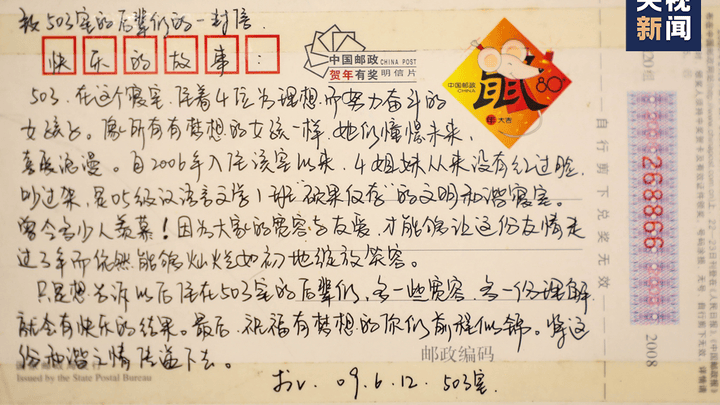 致503室的后辈们的一封信
央视
新闻
快乐的故事:
中国邮政 CHINA POST
贺年有奖 明信片
中国邮政
CHINA
80
鼠
年大吉
503.在这个寝室.住着4位为理想而努力奋斗的
女孩子。像所有有梦想的女孩一样,她们憧憬未来.
喜爱浪漫。自2006年入住该室以来.4姐妹从来没有红过脸.
吵过架,是05级汉语言文学1班"硕果仅存"的文明和谐寝室。
曾令多少人羡慕!因为大家的宽容与友爱.才能够让这份友情走
过3年而依然能够灿烂如初地绽放笑容。
只是想告诉以后住在503室的后辈们,多一些宽容.多一份理解
就会有快乐的结果。最后.祝福有梦想的你们前程似锦。将这
份和谐之情传递下去。
邮政编码
Issued by the State Postal Bureau
09.6.12. 503室.
自行剪下兑奖无效
268866
2008